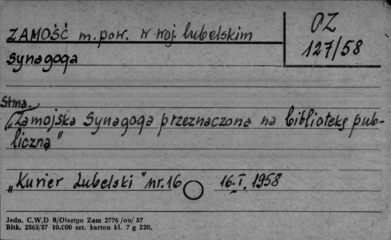 ZAMOŚĆ m. pow. w woj. lubelskim
OZ
127/58
Synagoga
Stma.
"Zamojska Synagoga przeznaczona na bibliotekę pub-
liczną"
„Kurier Lubelski" nr. 16 16.I.1958
Jedn. C.W.D 8/Olsztyn Zam 2776/on/57
Bltk. 2563/57 10.000 szt. karton kl. 7 g 220.